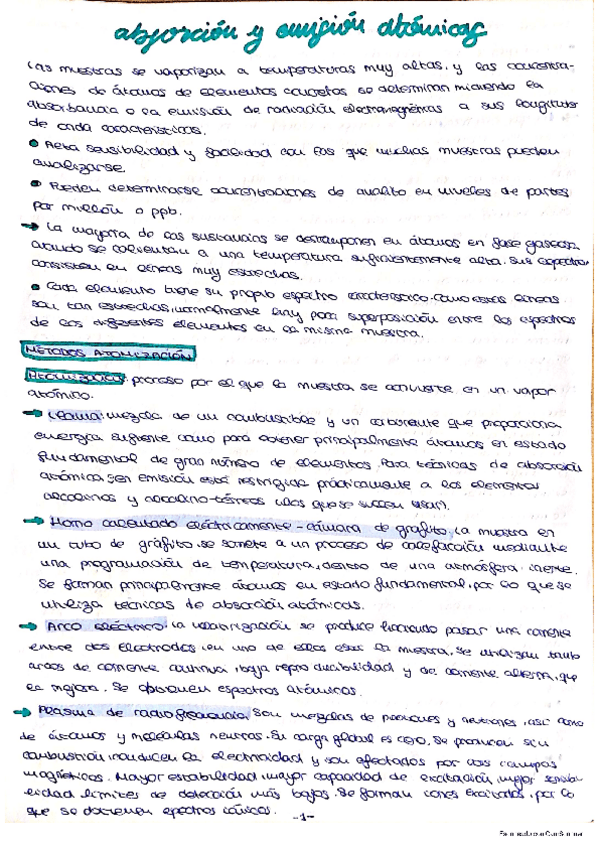 absorción y emisión atómicas
Las muestras se vaporizan a temperaturas muy altas, y las concentra-
ciones de átomos de elementos concretos se determinan midiendo la
absorbancia o la emisión de radiación electromagnética a sus longitudes
de onda características.
• Alta sensibilidad y facilidad con las que muchas muestras pueden
analizarse.
• Pueden determinarse concentraciones de analito en niveles de partes
por millón o ppb.
→ La mayoría de las sustancias se descomponen en átomos en fase gaseosa
cuando se calientan a una temperatura suficientemente alta. Sus espectros
consisten en líneas muy estrechas.
• Cada elemento tiene su propio espectro característico. Como estas líneas
son tan estrechas, normalmente hay poca superposición entre los espectros
de los diferentes elementos en la misma muestra.
MÉTODOS ATOMIZACIÓN
Atomización: proceso por el que la muestra se convierte en un vapor
atómico.
→ Llama: mezcla de un combustible y un carburente que proporciona
energía suficiente como para obtener principalmente átomos en estado
fundamental de gran número de elementos. Para técnicas de absorción
atómica, en emisión está restringida prácticamente a los elementos
alcalinos y alcalino-térreos (los que se suelen usar).
→ Horno calentado eléctricamente - cámara de grafito. La muestra en
un tubo de grafito se somete a un proceso de calefacción mediante
una programación de temperatura, dentro de una atmósfera inerte.
Se forman principalmente átomos en estado fundamental, por lo que se
utiliza técnicas de absorción atómicas.
→ Arco eléctrico: la vaporización se produce haciendo pasar una corriente
entre dos electrodos, en uno de ellos está la muestra. Se utilizan tanto
arcos de corriente continua, baja reproducibilidad y de corriente alterna, que
la mejora. Se obtienen espectros atómicos.
→ Plasma de radiofrecuencia. Son mezclas de protones y neutrones, así como
de átomos y moléculas neutras. Su carga global es cero. Se producen sin
combustión, conducen la electricidad y son afectados por los campos
magnéticos. Mayor estabilidad, mayor capacidad de excitación, mejor sensibi-
lidad, límites de detección más bajos. Se forman iones excitados, por lo
que se obtienen espectros iónicos.
-1-
Escaneado con CamScanner